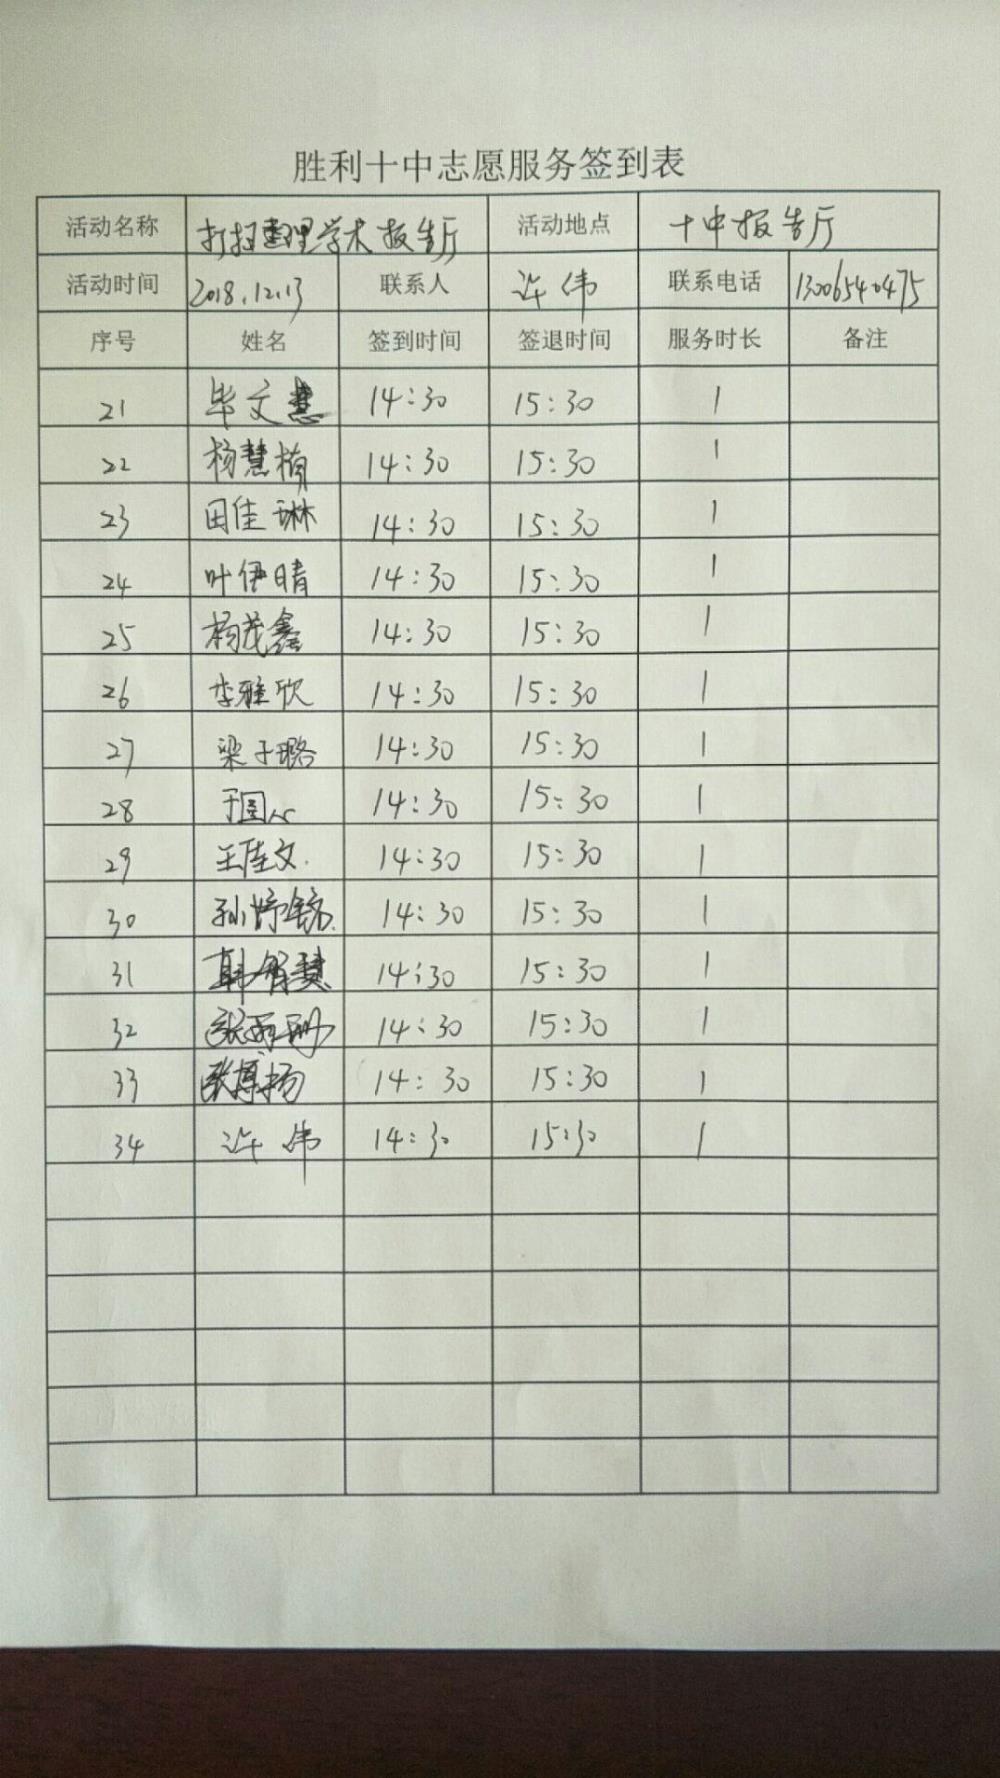 胜利十中志愿服务签到表
活动名称 打扫整理学术报告厅 活动地点 十中报告厅
活动时间 2018.12.13 联系人 许伟 联系电话 13006540475
序号 姓名 签到时间 签退时间 服务时长 备注
21 毕文慧 14:30 15:30 1
22 杨慧楠 14:30 15:30 1
23 田佳琳 14:30 15:30 1
24 叶伊晴 14:30 15:30 1
25 杨茂鑫 14:30 15:30 1
26 李雅欣 14:30 15:30 1
27 梁子璐 14:30 15:30 1
28 于圆心 14:30 15:30 1
29 王佳文. 14:30 15:30 1
30 孙婷 14:30 15:30 1
31 韩智慧 14:30 15:30 1
32 张 14:30 15:30 1
33 张博扬 14:30 15:30 1
34 许伟 14:30 15:30 1